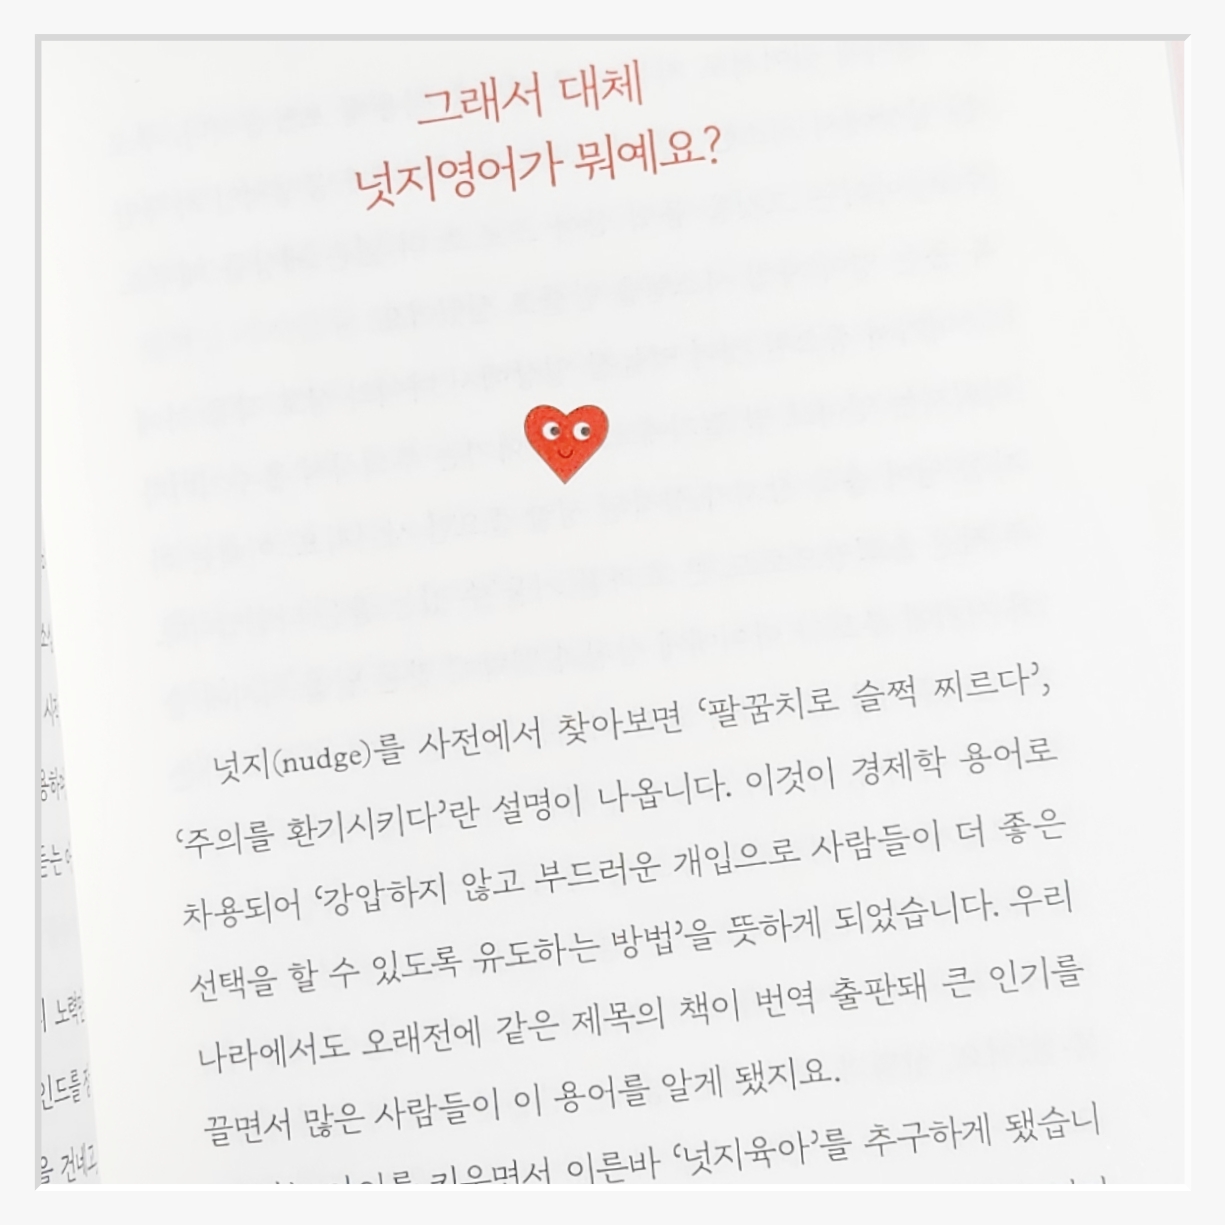 그래서 대체
넛지영어가 뭐예요?
넛지(nudge)를 사전에서 찾아보면 ‘팔꿈치로 슬쩍 찌르다’,
‘주의를 환기시키다’란 설명이 나옵니다. 이것이 경제학 용어로
차용되어 ‘강압하지 않고 부드러운 개입으로 사람들이 더 좋은
선택을 할 수 있도록 유도하는 방법’을 뜻하게 되었습니다. 우리
나라에서도 오래전에 같은 제목의 책이 번역 출판돼 큰 인기를
끌면서 많은 사람들이 이 용어를 알게 됐지요.
키우면서 이른바 ‘넛지육아’를 추구하게 됐습니